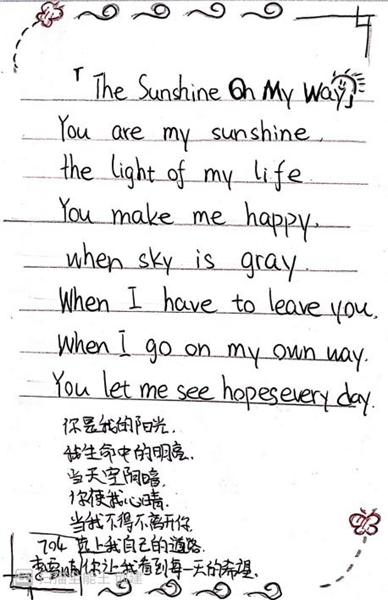 「The Sunshine On My Way」
You are my sunshine,
the light of my life.
You make me happy,
when sky is gray.
When I have to leave you,
When I go on my own way.
You let me see hopes every day.
你是我的阳光,
生命中的明亮,
当天空阴暗,
你使我心晴,
当我不得不离开你
704 上我自己的道路
你让我看到每一天的希望.